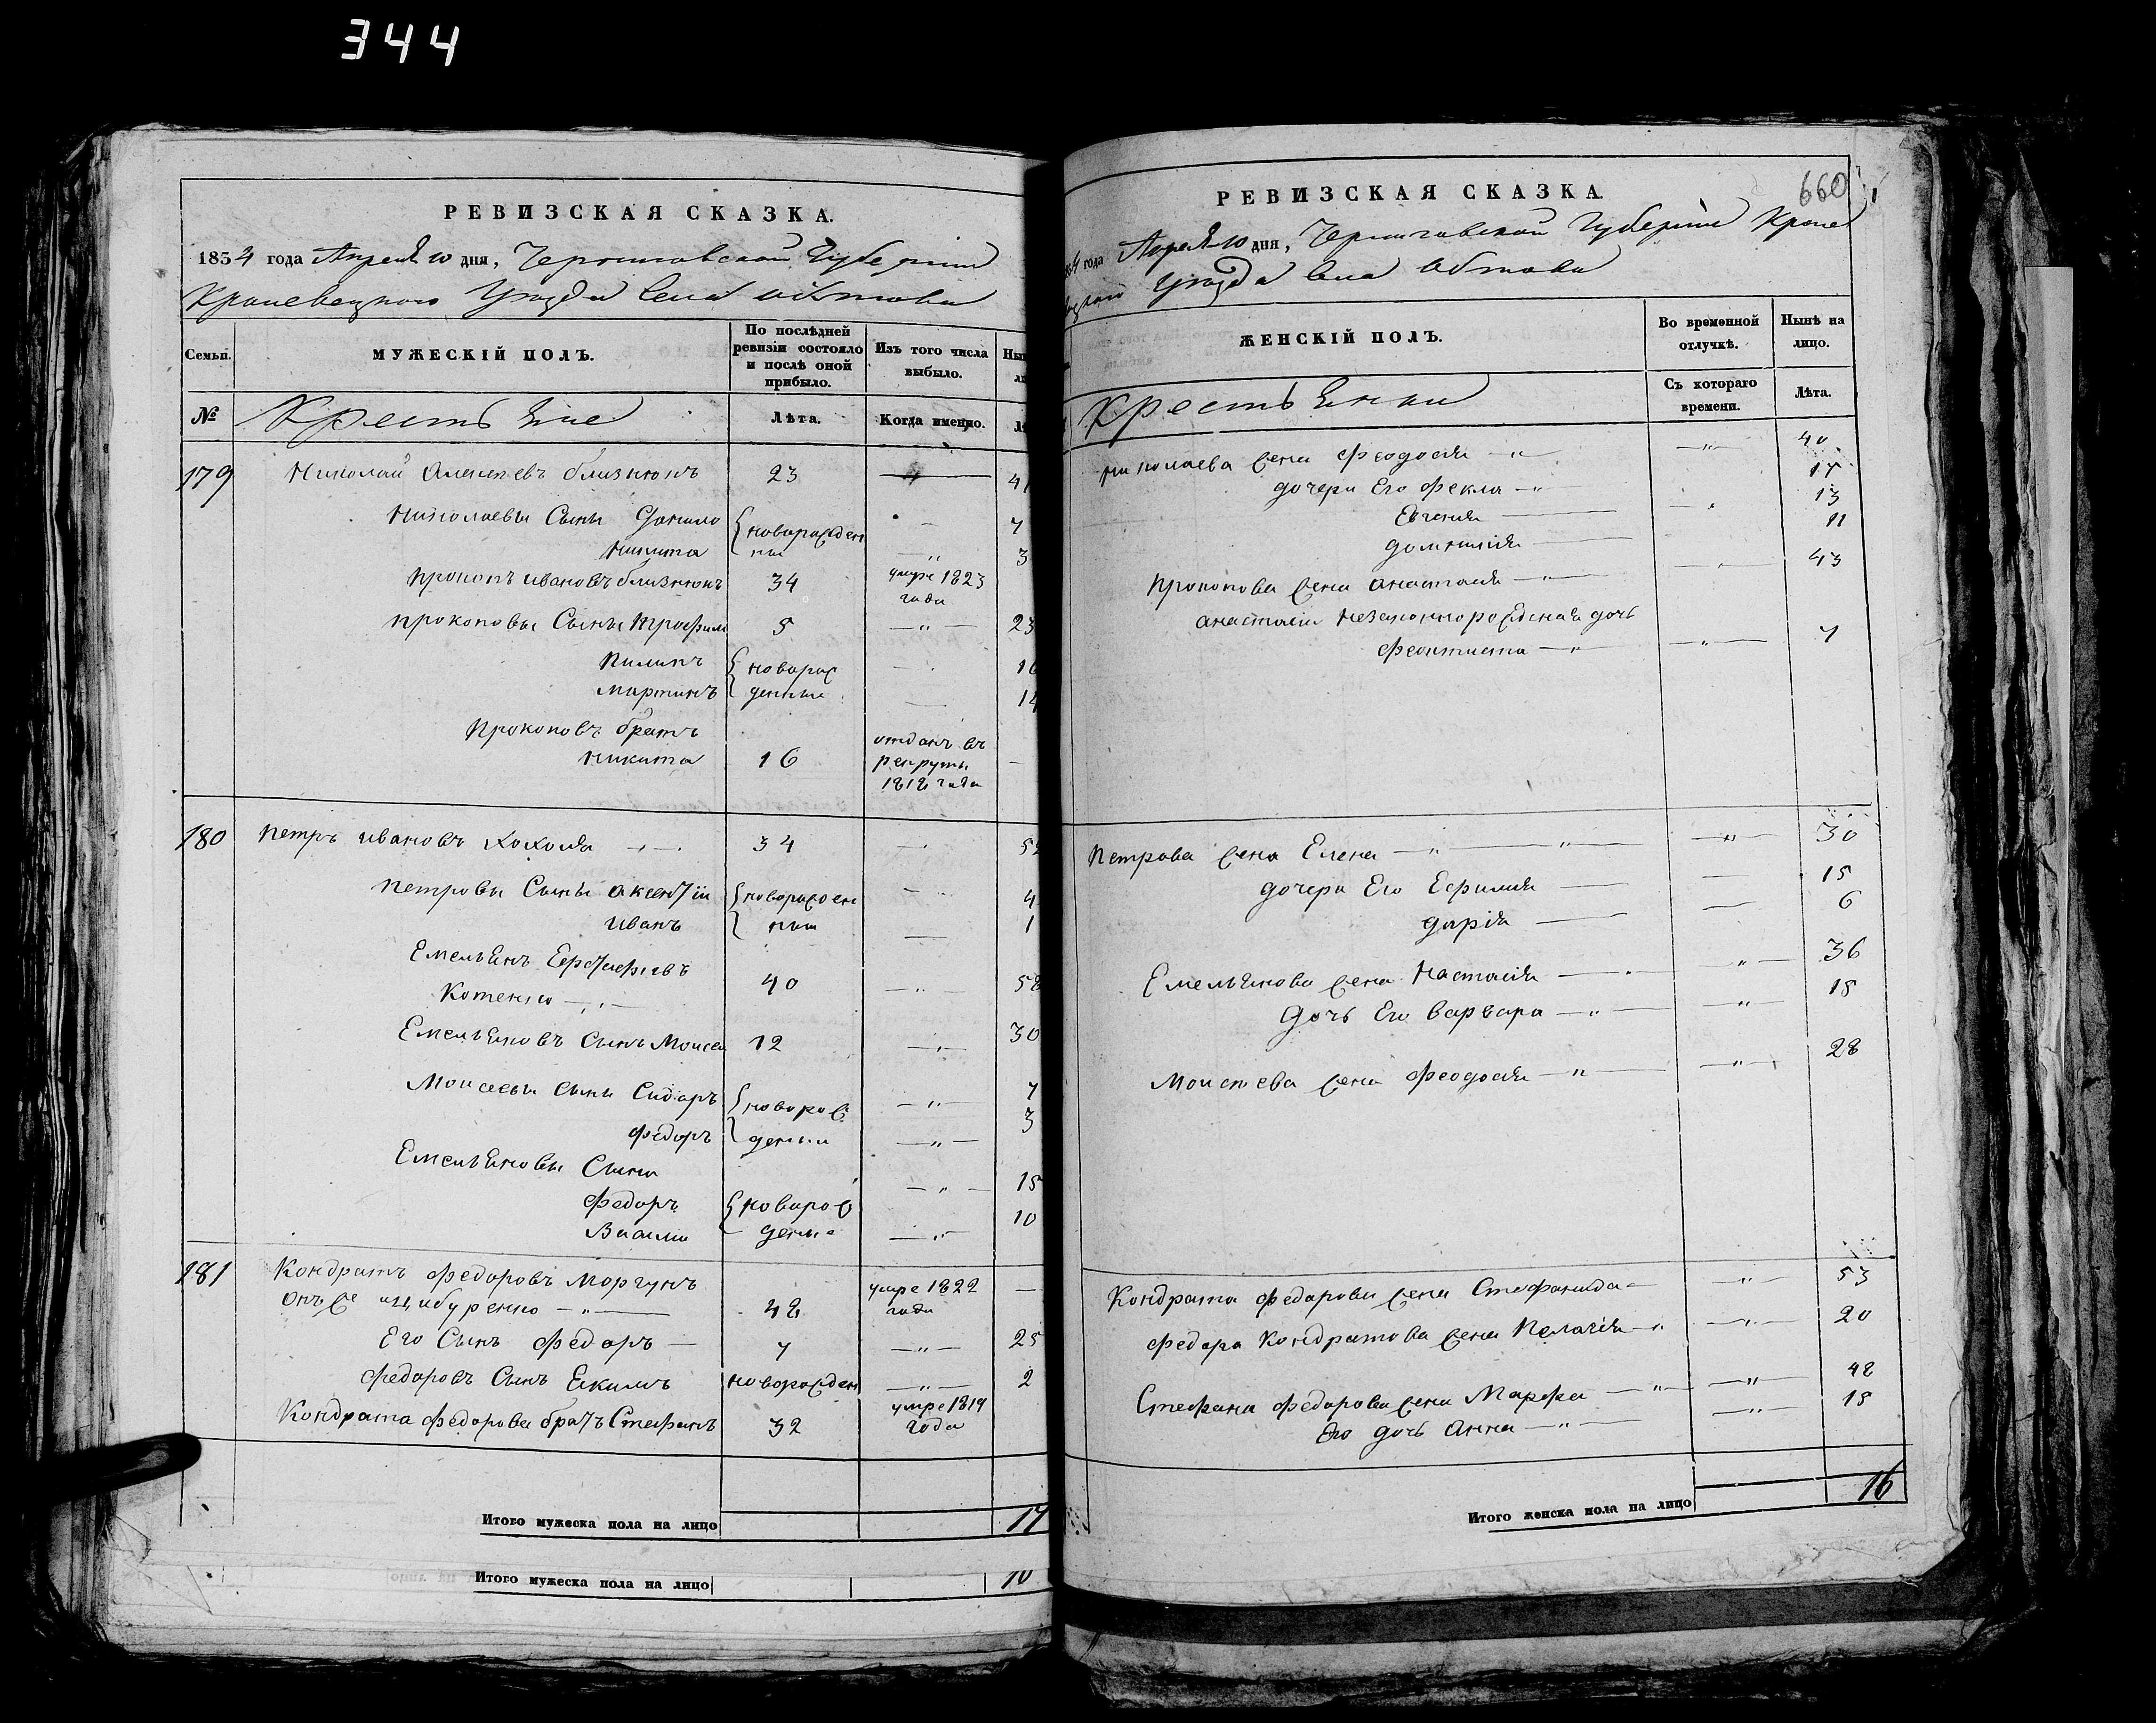 344
РЕВИЗСКАЯ СКАЗКА.
1834 года Апреля 10 дня, Черниговской Губернии
Кролевецкого Уезда Села Обтова
Семьи.
МУЖЕСКІЙ ПОЛЪ.
По послѣдней ревизіи состояло и послѣ оной прибыло.
Изъ того числа выбыло.
№
Крестьяне
Лѣта.
Когда именно.
179 Николай Алексеевъ близнюкъ 23
Николаевы Сыны Данило { новорожден 7
Никита ные 3
Прокопъ Ивановъ близнюкъ 34 умре 1823 года
Прокоповы Сыны Трофим 5 23
Пилипъ { новорож 16
Мартинъ денные 14
Прокоповъ братъ
Никита 16 отданъ въ рекруты 1818 года
180 Петръ Ивановъ Хохоля 34 52
Петровы Сыны Аксентіи { новорожден 4
Иванъ ные 1
Емельянъ
Котенко 40 58
Емельяновъ Сынъ Моисей 12 30
Моисеевы Сыны Сидоръ { новорож 7
Федоръ денны 3
Емельяновы Сыны
Федоръ { новорож 15
Василий денные 10
181 Кондратъ Федоровъ Моргунъ
онъ же Цибуренко 48 умре 1822 года
Его Сынъ Федоръ 7 25
Федоровъ Сынъ Екимъ новорожден 2
Кондрата Федорова братъ Стефанъ 32 умре 1819 года
Итого мужеска пола на лицо 17
Итого мужеска пола на лицо 10
660
РЕВИЗСКАЯ СКАЗКА.
4 года Апреля 10 дня, Черниговской Губернии Кроле
вецкого Уезда Села Обтова
ЖЕНСКІЙ ПОЛЪ.
Во временной отлучкѣ.
Нынѣ на лицо.
Крестьянки
Съ котораго времени.
Лѣта.
Николаева жена Феодосия 40
дочери Его Фекла 17
Евгения 13
Домникия 11
Прокопова жена Анастасия 43
Анастасии незаконнорожденная дочь
Феоктиста 7
Петрова жена Елена 30
дочери Его Ефимия 15
Дарія 6
Емельянова жена Настасия 36
Дочь Его Варвара 15
Моисеева жена Феодосия 28
Кондрата Федорова жена Стефанида 53
Федора Кондратова жена Пелагія 20
Стефана Федорова жена Марфа 48
Его дочь Анна 15
Итого женска пола на лицо 16